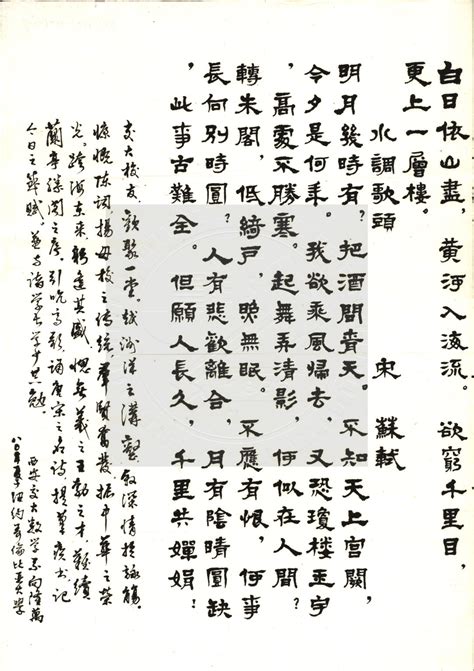 白日依山盡，黃河入海流。欲窮千里目，
更上一層樓。
水調歌頭　宋　蘇軾
明月幾時有？把酒問青天。不知天上宮闕，
今夕是何年。我欲乘風歸去，又恐瓊樓玉宇
，高處不勝寒。起舞弄清影，何似在人間？
轉朱閣，低綺戶，照無眠。不應有恨，何事
長向別時圓？人有悲歡離合，月有陰晴圓缺
，此事古難全。但願人長久，千里共嬋娟：
交大校友，歡聚一堂。越洲洋之溝壑，敘深情於詠觴。
慷慨陳詞，揚母校之傳統，羣賢奮發，振中華之榮
光。跨海東來，躬逢其盛，愧無羲之王勃之才，難續
蘭亭滕閣之序。引吭高歌，誦唐宋之名詩，提筆疾書，記
今日之，與諸學長學少共勉。
西安交大數學系向隆萬
紐約哥倫比亞大學